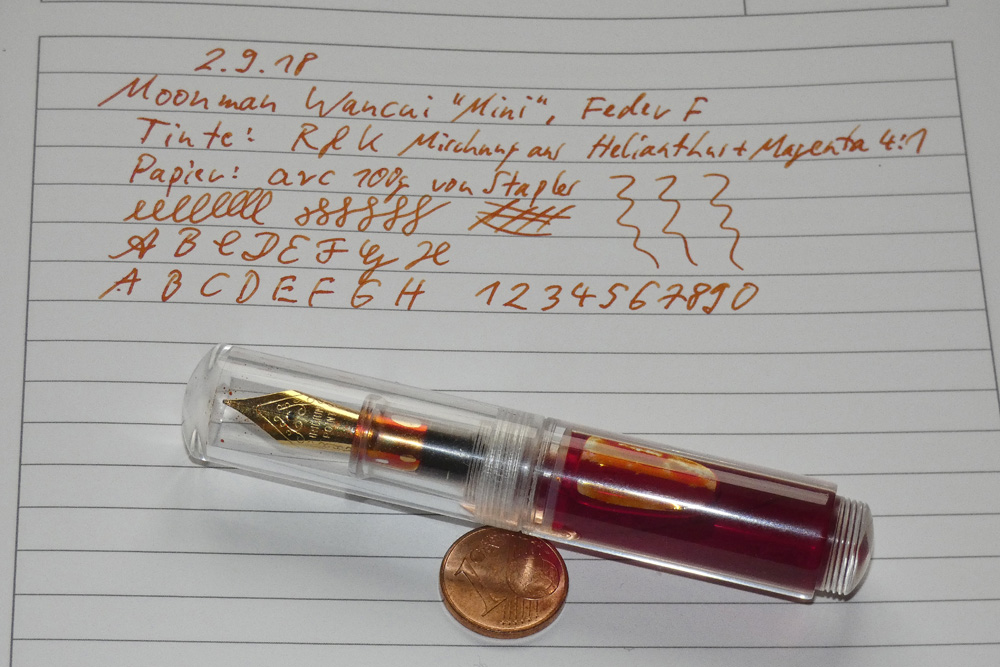 2.9.18
Moonman Wancai "Mini", Feder F
Tinte: R&K Mischung aus Helianthus + Magenta 4:1
Papier: arc 100g von Staples
A B C D E F G H
A B C D E F G H 1 2 3 4 5 6 7 8 9 0